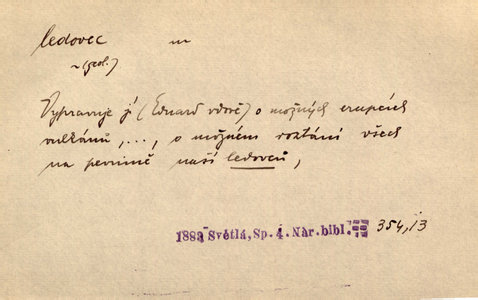 ledovec m
~ (geol.)
Vypravuje jí (Eduard vdově) o možných erupcích
vulkánů, ..., o možném roztání všech
na pevnině naší ledovců,
1883 Světlá, Sp. 4. Nár. bibl. 354,13